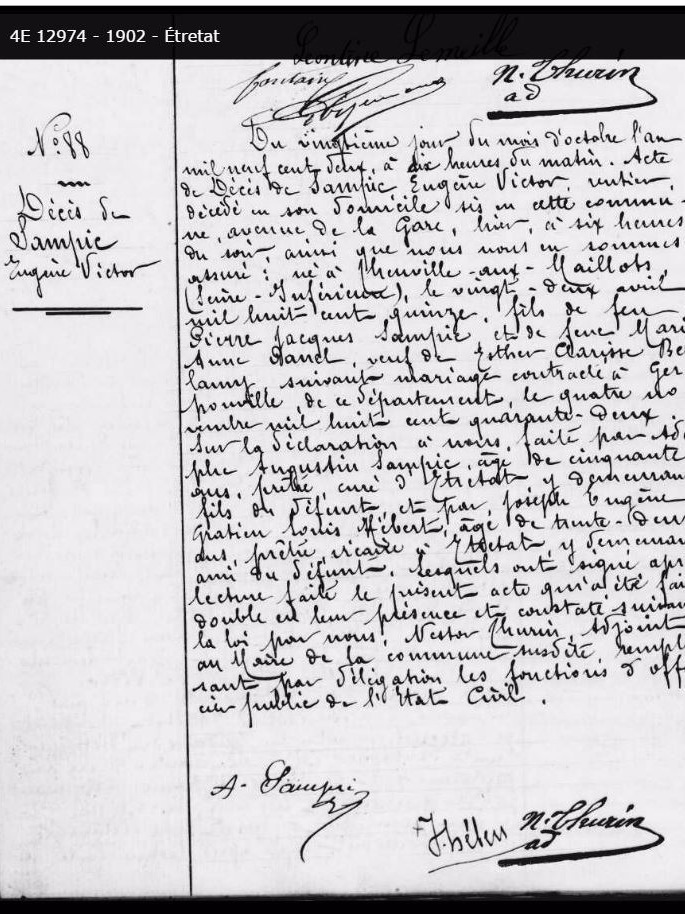 4E 12974 - 1902 - Étretat
Léontine Lemeille
N. Thurin
ad
N° 88
Décès de
Sampic
Eugène Victor
Du vingtième jour du mois d'octobre l'an
mil neuf cent deux, à dix heures du matin. Acte
de Décès de Sampic Eugène Victor, rentier,
décédé en son domicile sis en cette commu-
ne, avenue de la Gare, hier, à six heures
du soir, ainsi que nous nous en sommes
assuré ; né à Theuville-aux-Maillots,
(Seine-Inférieure), le vingt-deux avril
mil huit cent quinze, fils de feu
Pierre Jacques Sampic et de feue Mari
Anne Danel, veuf de Esther Clarisse Be
lamy suivant mariage contracté à Ger
ponville, de ce département, le quatre no
vembre mil huit cent quarante-deux.
Sur la déclaration à nous faite par Ado
phe Augustin Sampic, âgé de cinquante
ans, prêtre, curé d'Etretat, y demeurant
fils du défunt, et par Joseph Eugène
Gratien Louis Hébert, âgé de trente-deux
ans prêtre, vicaire à Etretat, y demeuran
ami du défunt. Lesquels ont signé apr
lecture faite le présent acte qui a été fai
double en leur présence et constaté suivan
la loi par nous, Nestor Thurin, Adjoint
au Maire de la commune susdite rempl
sant par délégation les fonctions d'off
cier public de l'Etat Civil.
A. Sampic
N. Thurin
ad